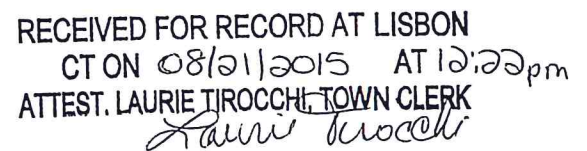 RECEIVED FOR RECORD AT LISBON
CT ON 08/21/2015 AT 12:22pm
ATTEST. LAURIE TIROCCHI, TOWN CLERK
Laurie Tirocchi